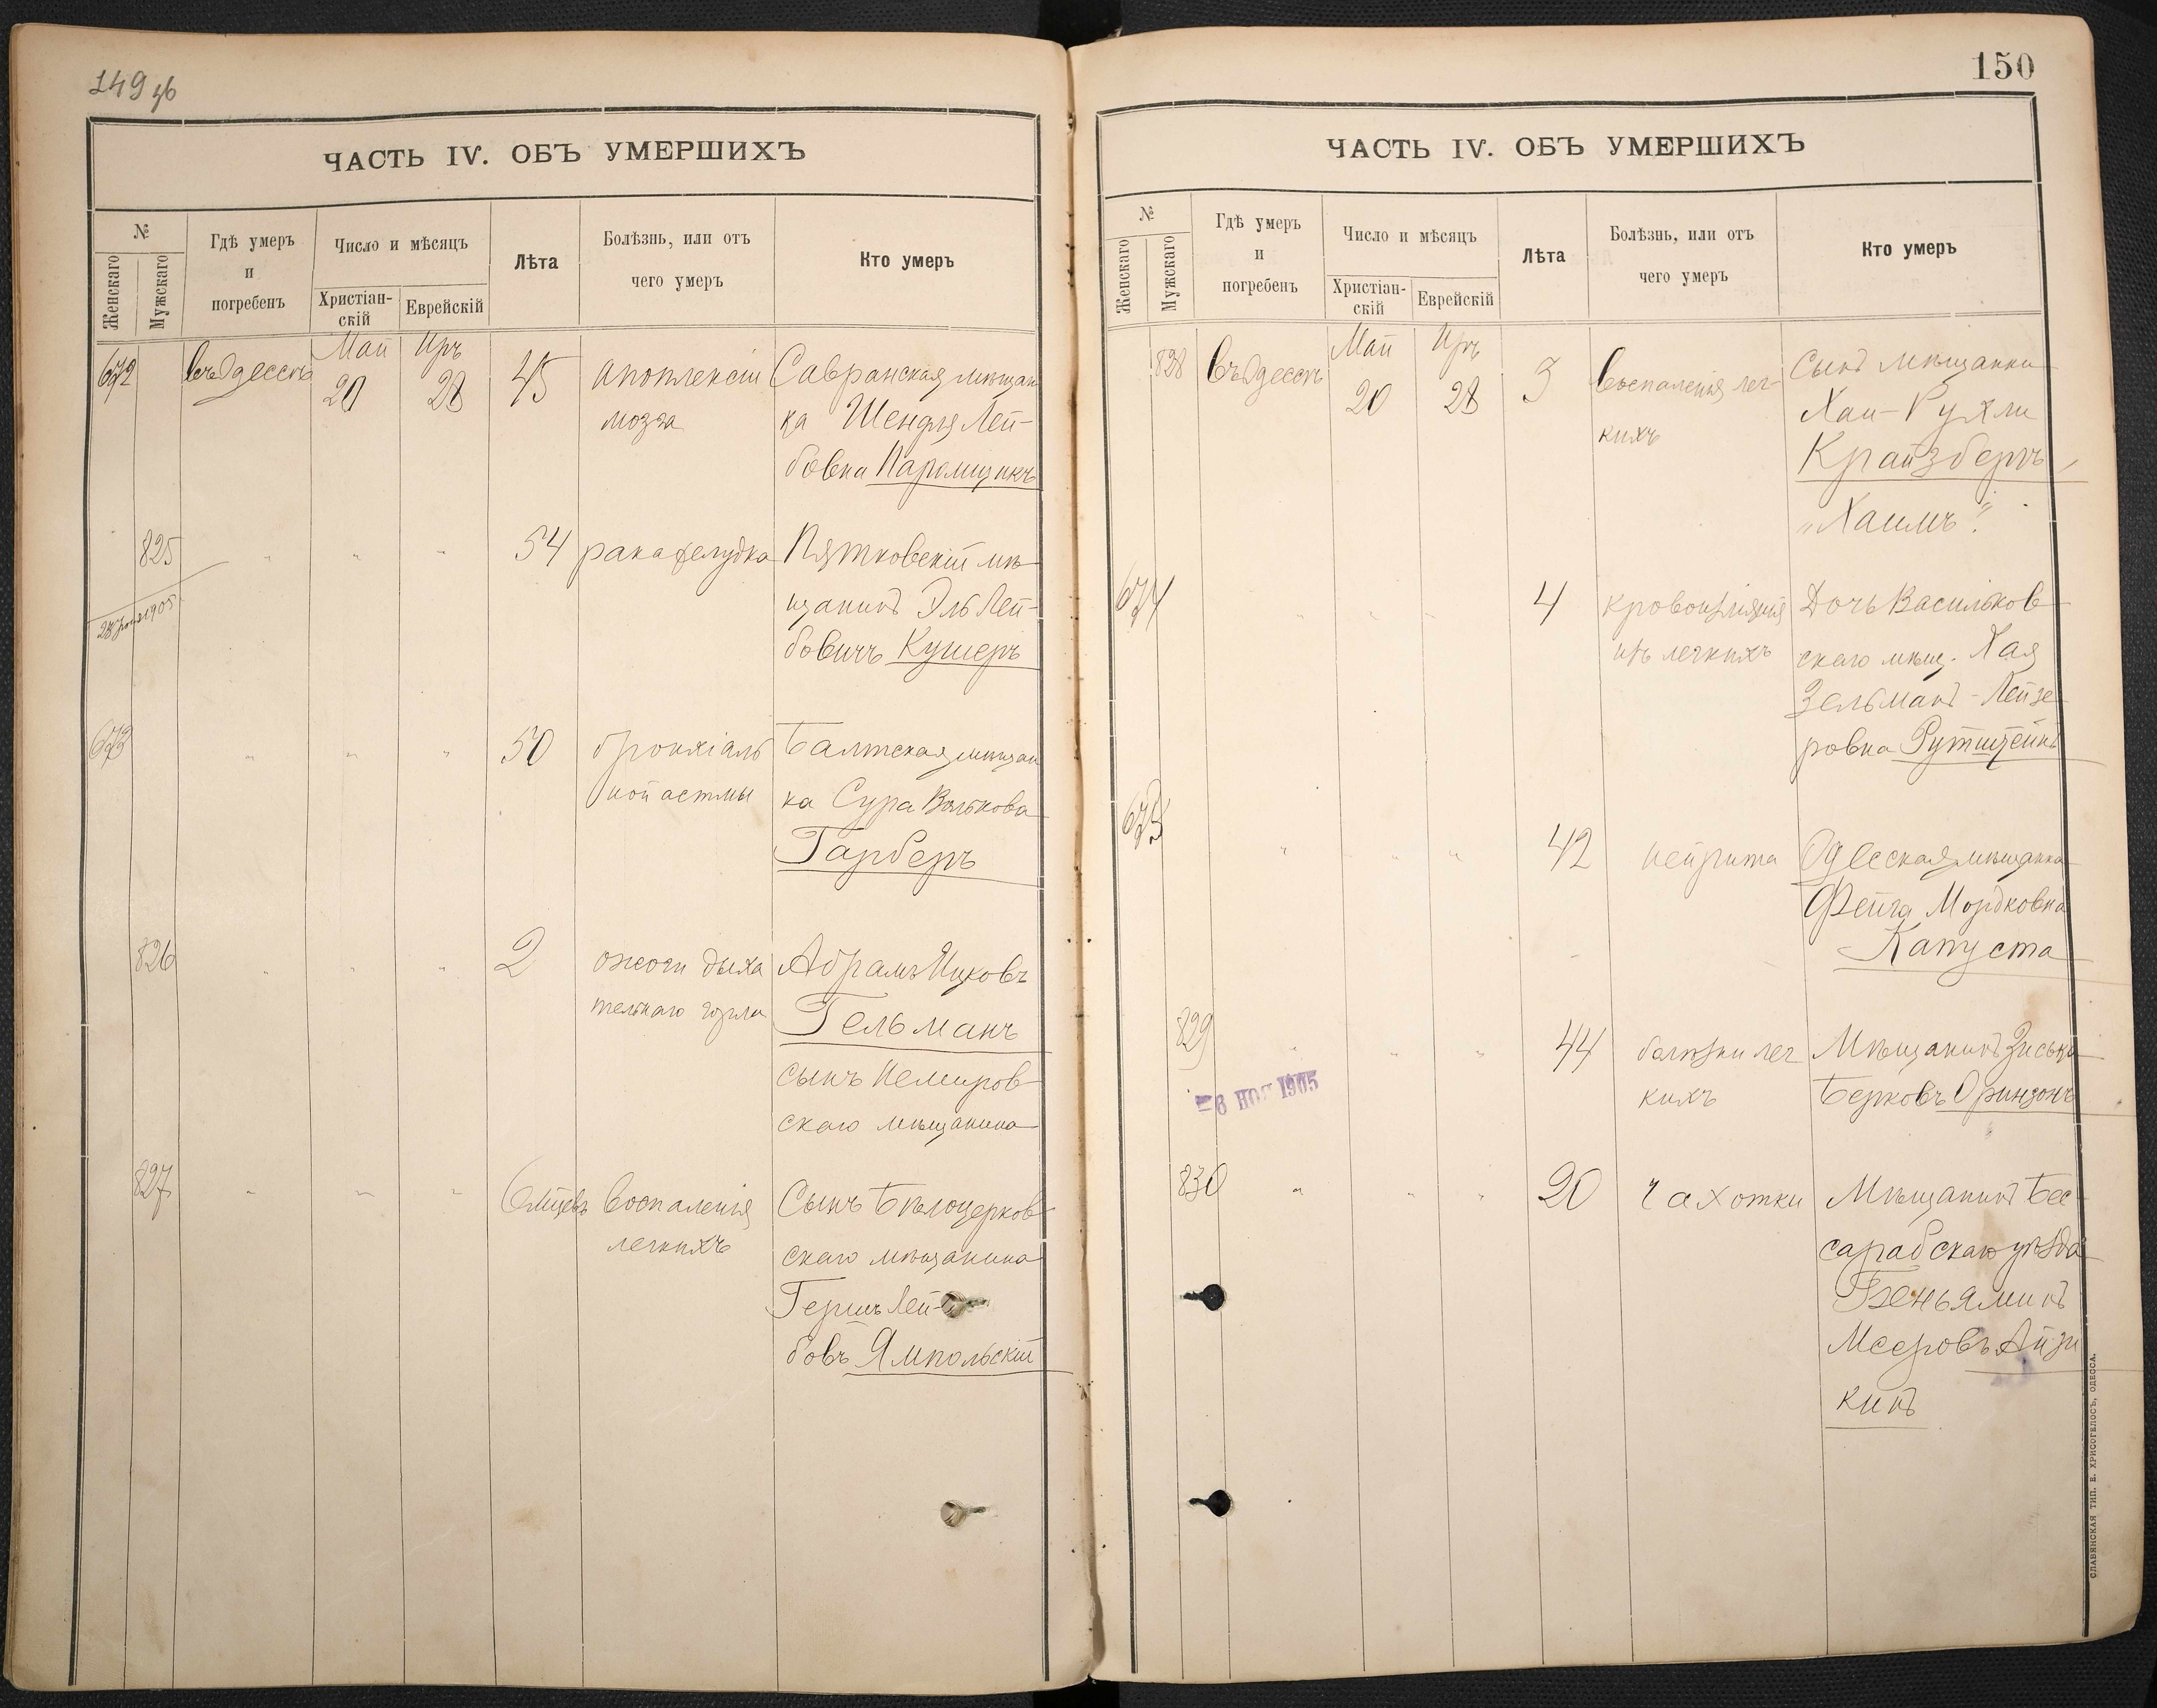 149 об
ЧАСТЬ IV. ОБЪ УМЕРШИХЪ
№
Женскаго
Мужскаго
Гдѣ умеръ
и
погребенъ
Число и мѣсяцъ
Христіан-
скій
Еврейскій
Лѣта
Болѣзнь, или отъ
чего умеръ
Кто умеръ
672 въ Одессѣ Май 20 Иръ 28 45 апоплексіи Савранская мѣщан
мозга ка Шендля Лей-
бовна Паромщикъ
825 " " " 54 рака желудка Пятковскій мѣ
щанинъ Эль Лей-
1905
бовичъ Кушеръ
673 " " " 50 бронхіаль Балтская мѣщан
ной астмы ка Сура Волькова
Гарберъ
826 " " " 2 ожоги дыха Абрамъ Ицковъ
тельнаго горла Гельманъ
сынъ Немиров
скаго мѣщанина
827 " " " 6 мѣсяцевъ Воспаленія Сынъ Бѣлоцерков
легкихъ скаго мѣщанина
Гершъ Лей-
бовъ Ямпольскій
150
ЧАСТЬ IV. ОБЪ УМЕРШИХЪ
№
Женскаго
Мужскаго
Гдѣ умеръ
и
погребенъ
Число и мѣсяцъ
Христіан-
скій
Еврейскій
Лѣта
Болѣзнь, или отъ
чего умеръ
Кто умеръ
828 въ Одессѣ Май 20 Иръ 28 3 воспаленія лег- Сынъ мѣщанки
кихъ Хаи-Рухли
Крайзбергъ,
„Хаимъ"
674 " " " 4 кровоизліянія Дочь Васильков
изъ легкихъ скаго мѣщ. Хая
Зельманъ-Лейзе
ровна Рутштейнъ
675 " " " 42 нейрита Одесская мѣщанка
Фейга Мордковна
Капуста
829 " " " 44 болѣзни лег Мѣщанинъ Зиська
кихъ Берковъ Оринзонъ
6 НОЯ 1905
830 " " " 20 чахотки Мѣщанинъ Бес
сарабскаго уѣзда
Беньяминъ
Мееровъ Айзи
кинъ
СЛАВЯНСКАЯ ТИП. Е. ХРИСОГЕЛОСЪ, ОДЕССА.